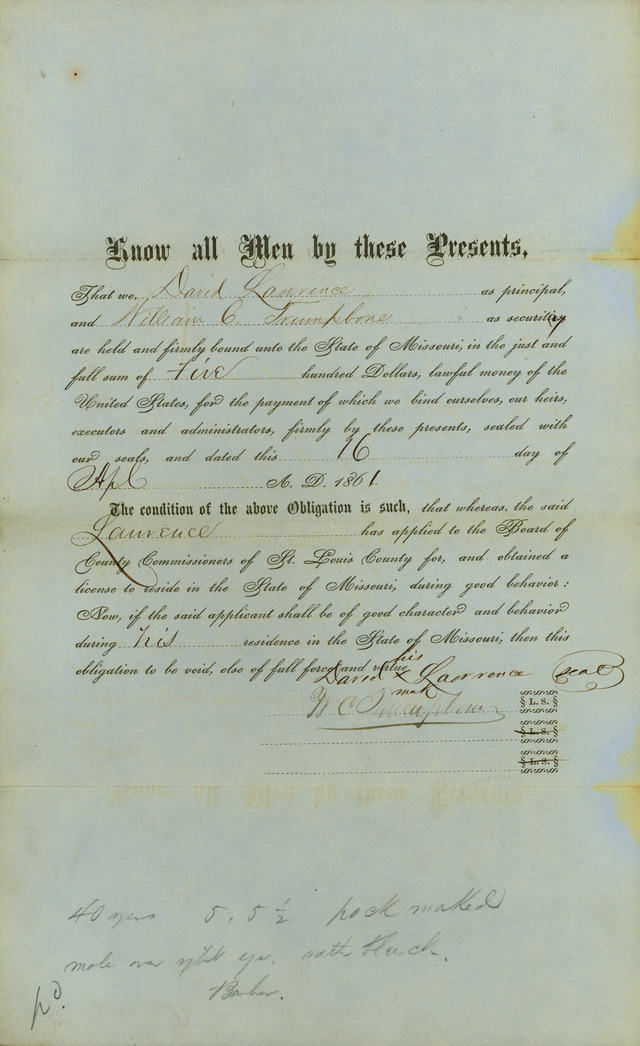 Know all Men by these Presents,
That we, David Lawrence as principal,
and William C. Trumpbone as security
are held and firmly bound unto the State of Missouri, in the just and
full sum of five hundred Dollars, lawful money of the
United States, for the payment of which we bind ourselves, our heirs,
executors and administrators, firmly by these presents, sealed with
our seals, and dated this 16 day of
Apl A. D. 1861.
The condition of the above Obligation is such, that whereas, the said
Lawrence has applied to the Board of
County Commissioners of St. Louis County for, and obtained a
license to reside in the State of Missouri, during good behavior:
Now, if the said applicant shall be of good character and behavior
during his residence in the State of Missouri, then this
obligation to be void, else of full force and virtue.
his
David x Lawrence seal
mark
W C § L. S. §
§ L. S. §
§ L. S. §
40 years 5. 5 ½ pock marked
mole over right eye. rath black.
Barber.
pd.